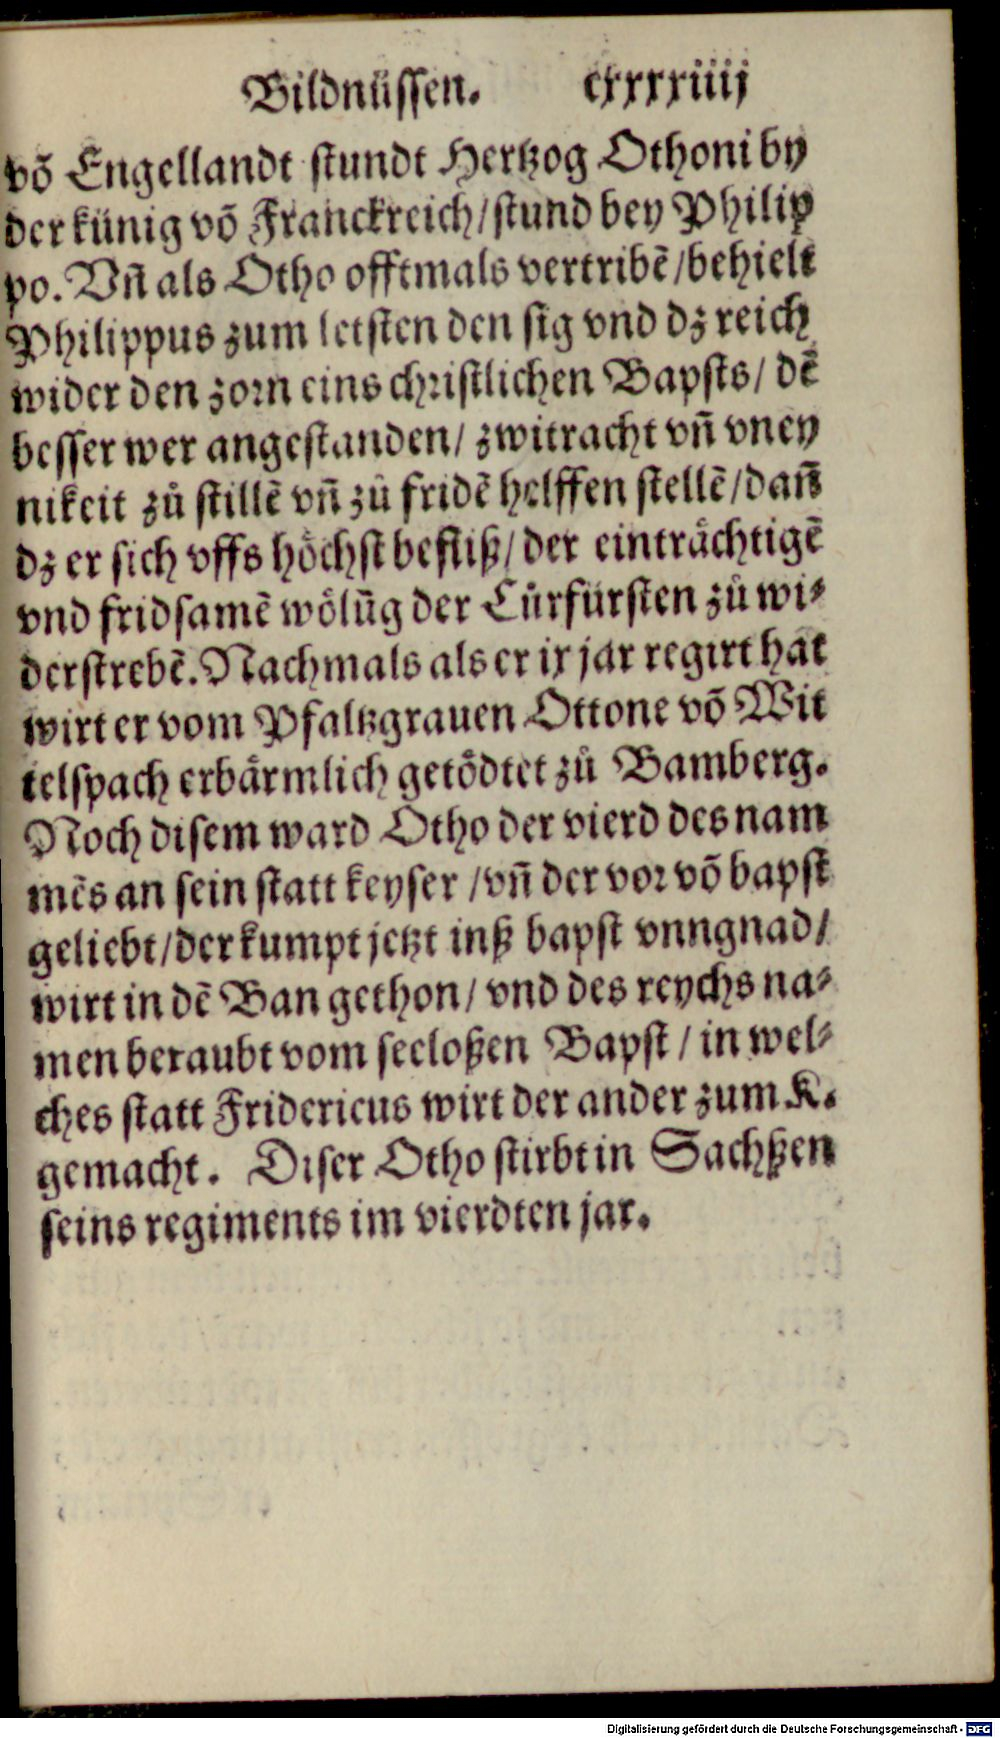 Bildnüssen. cxxxxiiij
võ Engellandt stundt Hertzog Othoni by
der künig võ Franckreich/stund bey Philip
po. Vñ als Otho offtmals vertribẽ/behielt
Philippus zum letsten den sig vnd dz reich
wider den zorn eins christlichen Bapsts/ dẽ
besser wer angestanden/ zwitracht vñ vney
nikeit zů stillẽ vñ zů fridẽ helffen stellẽ/dañ
dz er sich vffs höchst befliß/ der einträchtigẽ
vnd fridsamẽ wölũg der Cůrfürsten zů wi-
derstrebẽ. Nachmals als er ix jar regirt hat
wirt er vom Pfaltzgrauen Ottone võ Wit
telspach erbärmlich getödtet zů Bamberg.
Noch disem ward Otho der vierd des nam
mẽs an sein statt keyser /vñ der vor võ bapst
geliebt/der kumpt jetzt inß bapst vnngnad/
wirt in dẽ Ban gethon/ vnd des reychs na-
men beraubt vom seeloßen Bapst / in wel-
ches statt Fridericus wirt der ander zum K.
gemacht. Diser Otho stirbt in Sachßen
seins regiments im vierdten jar.
Digitalisierung gefördert durch die Deutsche Forschungsgemeinschaft - DFG